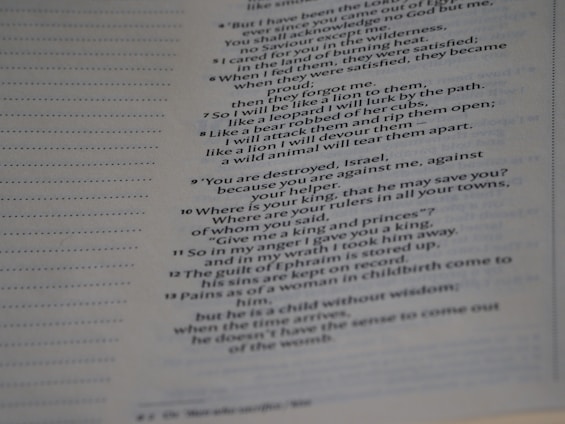 like smoke
4 'But I have been the LORD your
ever since you came out of Egypt.
You shall acknowledge no God but me,
no Saviour except me.
5 I cared for you in the wilderness,
in the land of burning heat.
6 When I fed them, they were satisfied;
when they were satisfied, they became
proud;
then they forgot me.
7 So I will be like a lion to them,
like a leopard I will lurk by the path.
8 Like a bear robbed of her cubs,
I will attack them and rip them open;
like a lion I will devour them –
a wild animal will tear them apart.
9 'You are destroyed, Israel,
because you are against me, against
your helper.
10 Where is your king, that he may save you?
Where are your rulers in all your towns,
of whom you said,
"Give me a king and princes"?
11 So in my anger I gave you a king,
and in my wrath I took him away.
12 The guilt of Ephraim is stored up,
his sins are kept on record.
13 Pains as of a woman in childbirth come to
him,
but he is a child without wisdom;
when the time arrives,
he doesn't have the sense to come out
of the womb.
Or